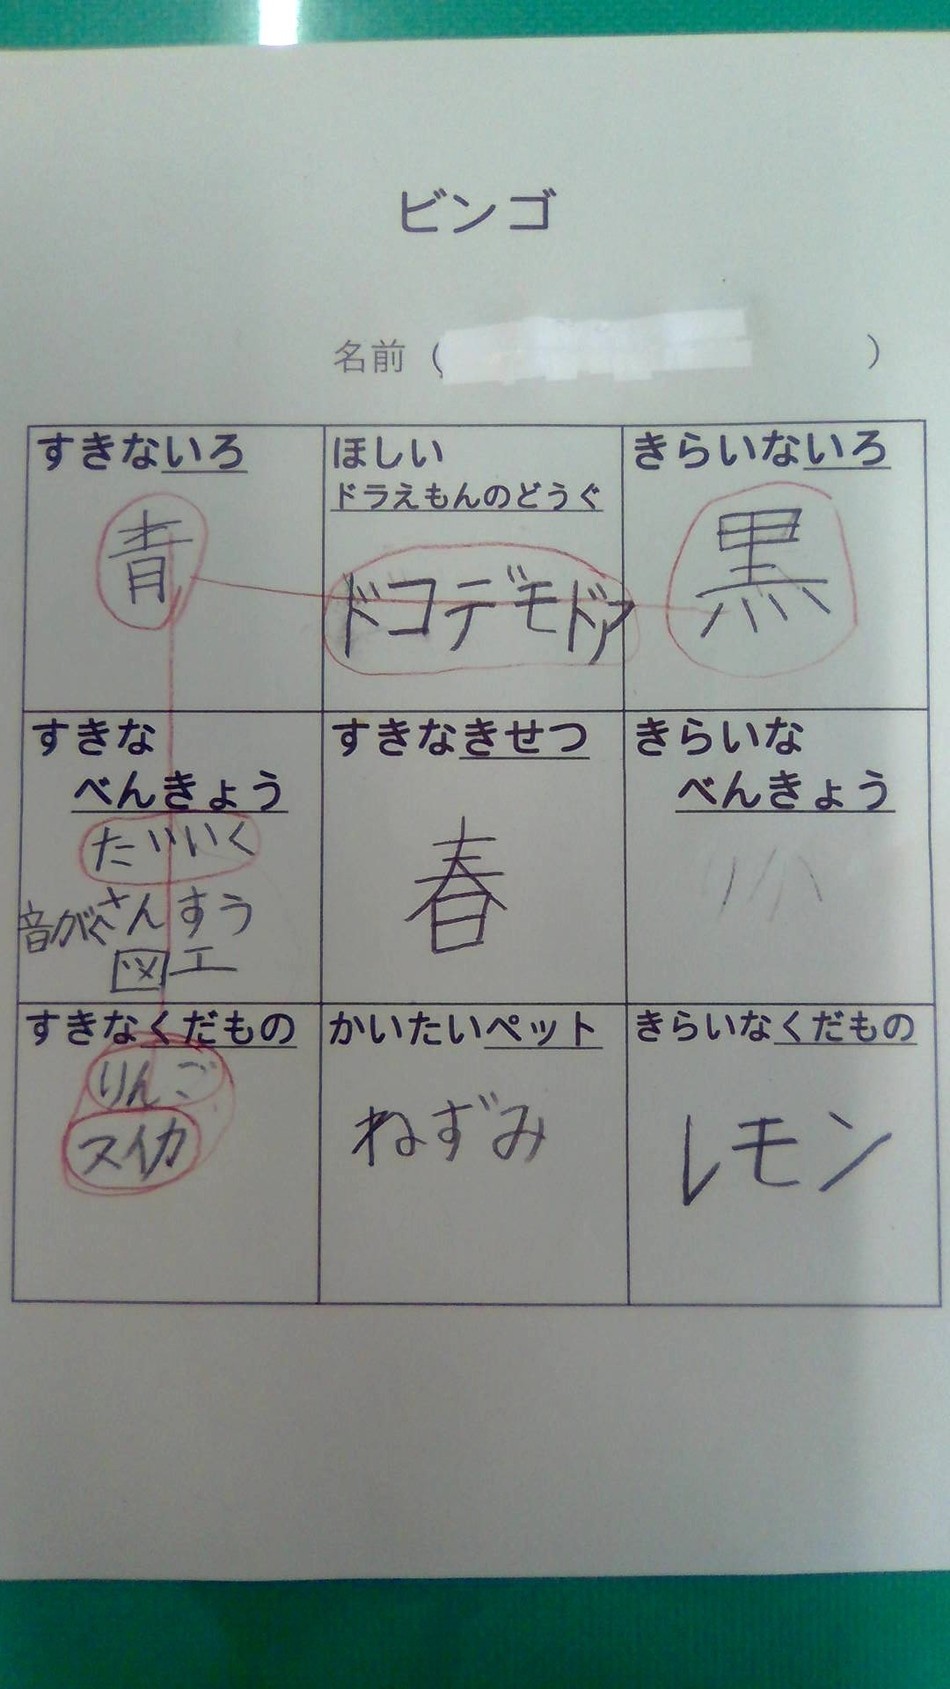 ビンゴ
名前（　　　）
すきないろ
青
ほしい
ドラえもんのどうぐ
ドコデモドア
きらいないろ
黒
すきな
べんきょう
たいいく
音がく さんすう
図工
すきなきせつ
春
きらいな
べんきょう
すきなくだもの
りんご
スイカ
かいたいペット
ねずみ
きらいなくだもの
レモン